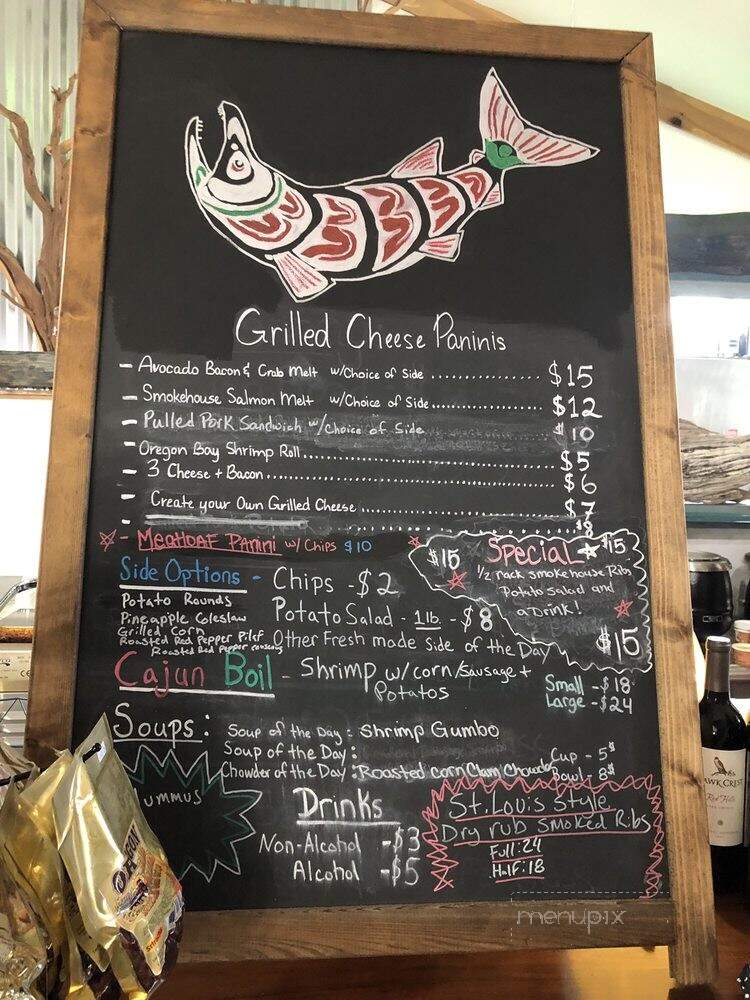 Grilled Cheese Paninis
- Avocado Bacon & Crab Melt w/Choice of Side .................. $15
- Smokehouse Salmon Melt w/Choice of Side.................. $12
- Pulled Pork Sandwich w/Choice of Side $10
- Oregon Bay Shrimp Roll.................. $5
- 3 Cheese + Bacon.................. $6
- Create your Own Grilled Cheese .................. $7
- Meatloaf Panini w/ Chips $10
$15 Special $15
1/2 rack smokehouse Ribs
Potato Salad and
a Drink!
$15
Side Options - Chips - $2
Potato Rounds
Pineapple Coleslaw
Grilled Corn
Roasted Red Pepper Pilaf
Roasted Red Pepper
Potato Salad - 1 lb. - $8
Other Fresh made Side of the Day
Cajun Boil - Shrimp w/ corn/sausage +
Potatos
Small - $18
Large - $24
Soups:
Soup of the Day: Shrimp Gumbo
Soup of the Day:
Chowder of the Day: Roasted corn Clam Chowder
Cup - 5$
Bowl - 8$
ummus
Drinks
Non-Alcohol - $3
Alcohol - $5
St. Louis Style
Dry rub smoked Ribs
Full: 24
Half: 18
HAWK CREST
Red
menupix